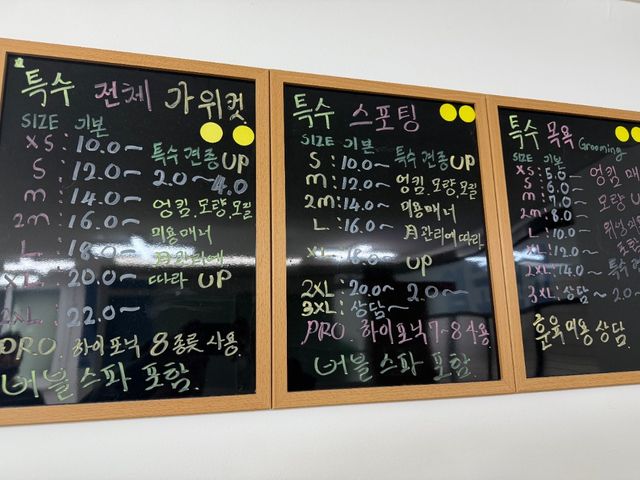 특수 전체 가위컷
SIZE 기본
XS : 10.0~ 특수견종 UP
S : 12.0~ 2.0~4.0
M : 14.0~ 엉킴. 모량. 모질
2M : 16.0~ 미용매너
L : 18.0~ 月관리에
XL : 20.0~ 따라 UP
2XL : 22.0~
PRO. 하이포닉 8종류 사용.
버블스파 포함.
특수 스포팅
SIZE 기본
S : 10.0~ 특수견종 UP
M : 12.0~ 엉킴. 모량. 모질
2M : 14.0~ 미용매너
L : 16.0~ 月관리에 따라
XL : 18.0~ UP
2XL : 20.0~ 2.0~
3XL : 상담~
PRO. 하이포닉 7~8 사용
버블스파 포함.
특수 목욕 Grooming
SIZE 기본
XS : 5.0~ 엉킴
S : 6.0~
M : 7.0~ 모량
2M : 8.0~
L : 10.0~
XL : 12.0~
2XL : 14.0~ 특수
3XL : 상담~ 2.0~
훈육미용 상담.